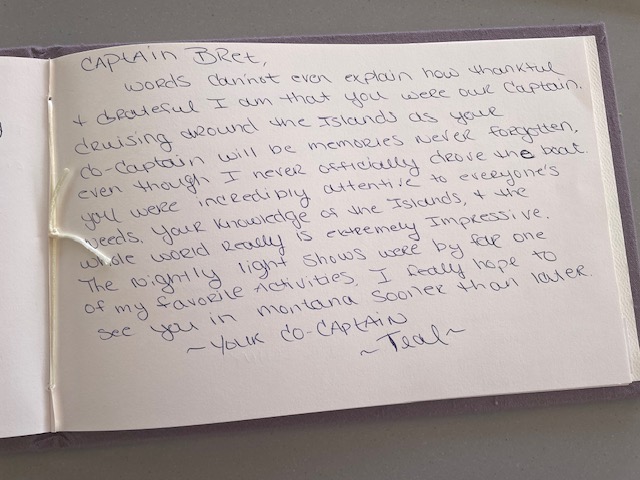 CAPTAIN BRET,
words cannot even explain how thankful
+ Grateful I am that you were our Captain.
Cruising around the Islands as your
Co-Captain will be memories never forgotten,
even though I never officially drove the boat.
you were incredibly attentive to everyone's
needs. Your knowledge of the Islands, + the
whole world really is extremely Impressive.
The nightly light shows were by far one
of my favorite Activities. I really hope to
see you in montana sooner than later.
~YOUR CO-CAPTAIN
~Teal~